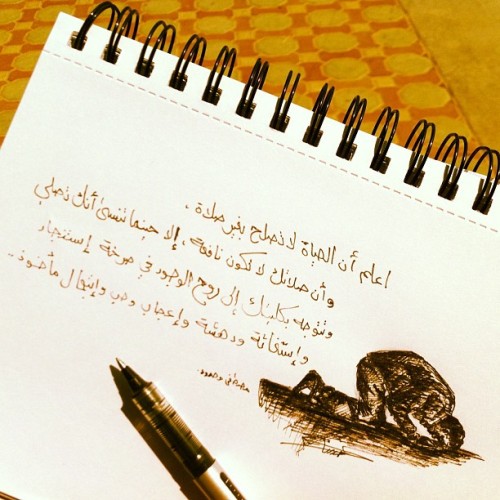 اعلم أن الحياة لا تصلح بغير صلاة .
وأن صلاتك لا تكون نافعة ، إلا حينما تنسى أنك تصلي
وتتوجه بكليتك إلى روح الوجود في صرخة إستنجاد
وإستغاثة ودهشة وإعجاب وحب وإبتهال مأخوذ ..
مصطفى محمود